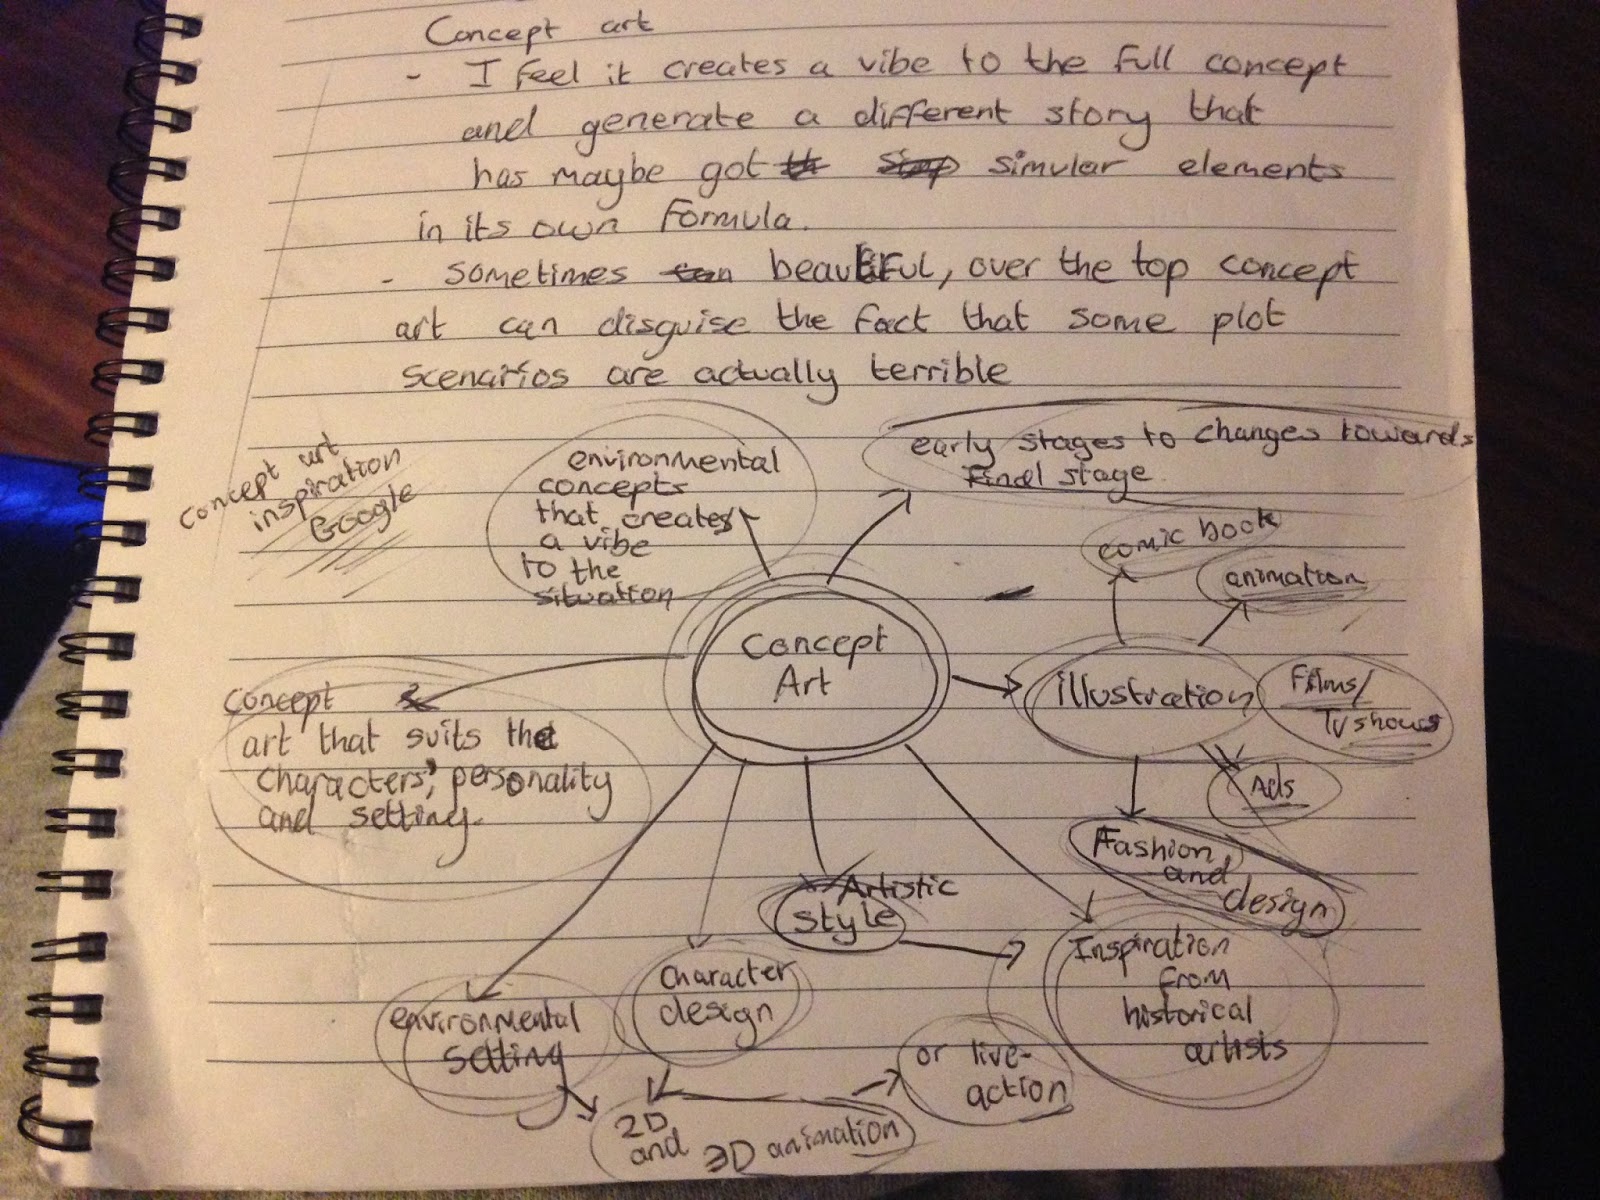 Concept art
- I feel it creates a vibe to the full concept
and generate a different story that
has maybe got simular elements
in its own formula.
- sometimes beautiful, over the top concept
art can disguise the fact that some plot
scenarios are actually terrible
Concept art
inspiration
Google
environmental
concepts
that creates
a vibe
to the
situation
early stages to changes towards
Final stage
comic book
animation
Concept
Art
illustration
Films/
TV shows
Ads
Fashion
and
design
Concept
art that suits the
characters, personality
and setting.
Artistic
style
Inspiration
from
historical
artists
Character
design
environmental
setting
or live-
action
2D
and 3D animation